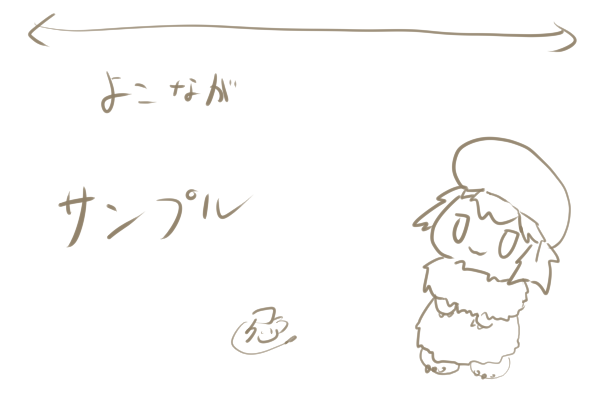 よこなが
サンプル